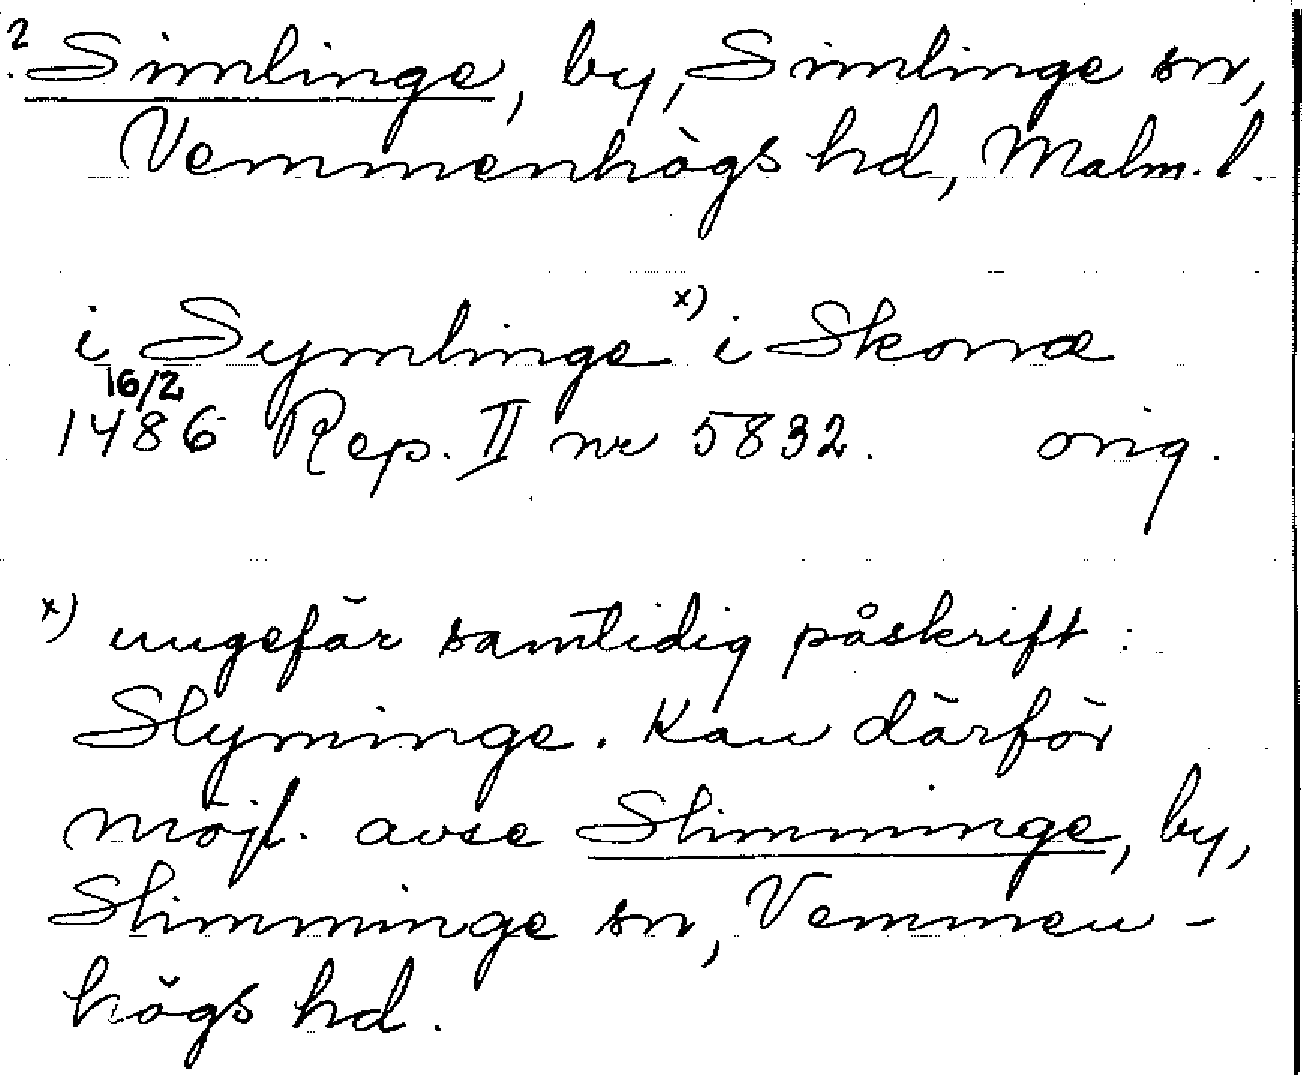 ? Simlinge, by, Simlinge sn,
Vemmenhögs hd, Malm. l.
i Symlinge x) i Skonæ
16/2
1486 Rep. II nr 5832. orig.
x) ungefär samtidig påskrift:
Slyminge. Kan därför
möjl. avse Slimminge, by,
Slimminge sn, Vemmen-
högs hd.